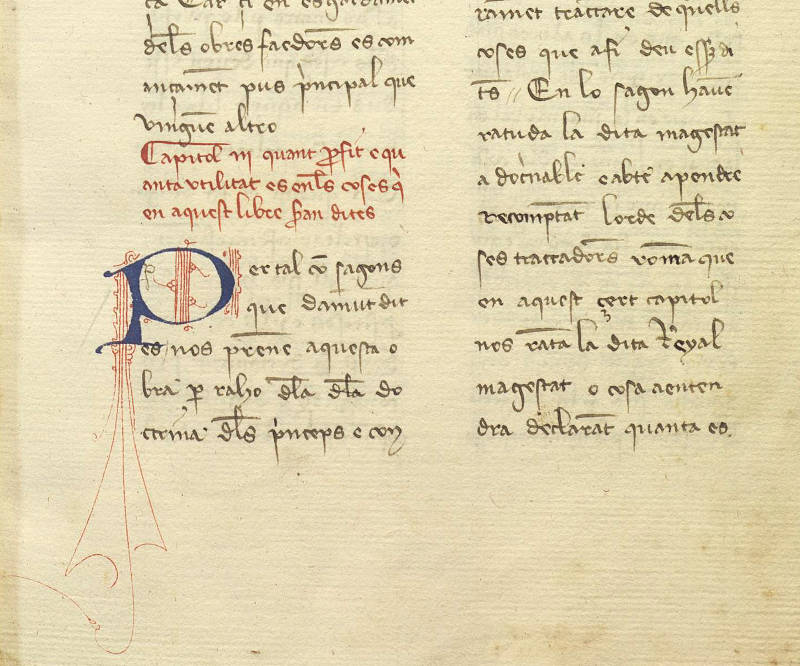 dels obres faedors es com
ançamet pus pncipal que
vingue altro
Capitol iij quant pfit e qu
anta vtilitat es enls coses q̃
en aquest libre sran dites
Per tal cõ sagons
que damut dit
es / nos prēne aquesta o
bra p raho dla dla do
ctrina dls pnceps e con
ramet tractare de quells
coses que asi deu esp di
ts // En lo sagon haue
ratuda la dita magestat
a docrinable e abte apendre
recomptat lorde dels co
ses tractadors roman que
en aquest çert capitol
nos rata la dita Reyal
magestat o cosa a enten
dra declarat quanta es.